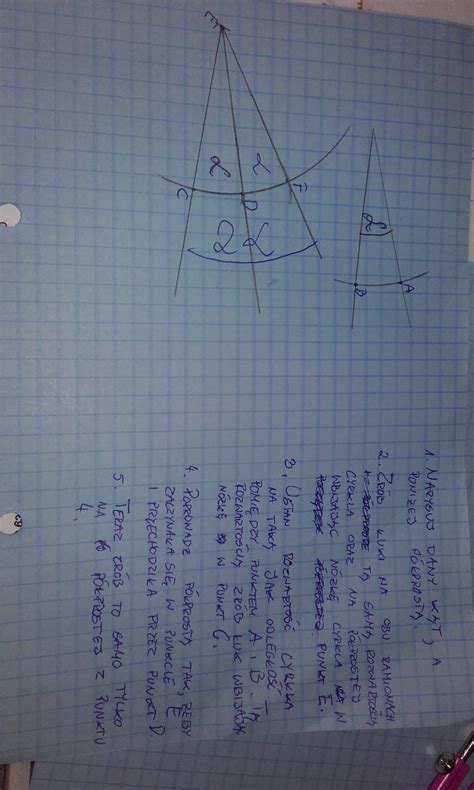 A
α
B
E
F
α
D
2α
α
C
1. NARYSUJ DANY KĄT, A
PONIŻEJ PÓŁPROSTĄ.
2. ZRÓB ŁUKI NA OBU RAMIONACH
TĄ SAMĄ ROZWARTOŚCIĄ
CYRKLA ORAZ NA PÓŁPROSTEJ
WBIJAJĄC NÓŻKĘ CYRKLA W
PUNKT E.
3. USTAW ROZWARTOŚĆ CYRKLA
NA TAKĄ JAK ODLEGŁOŚĆ
POMIĘDZY PUNKTEM A I B. TĄ
ROZWARTOŚCIĄ ZRÓB ŁUK WBIJAJĄC
NÓŻKĘ W PUNKT C.
4. POPROWADŹ PÓŁPROSTĄ TAK, ŻEBY
ZACZYNAŁA SIĘ W PUNKCIE E
I PRZECHODZIŁA PRZEZ PUNKT D.
5. TERAZ ZRÓB TO SAMO TYLKO
NA PÓŁPROSTEJ Z PUNKTU
4.